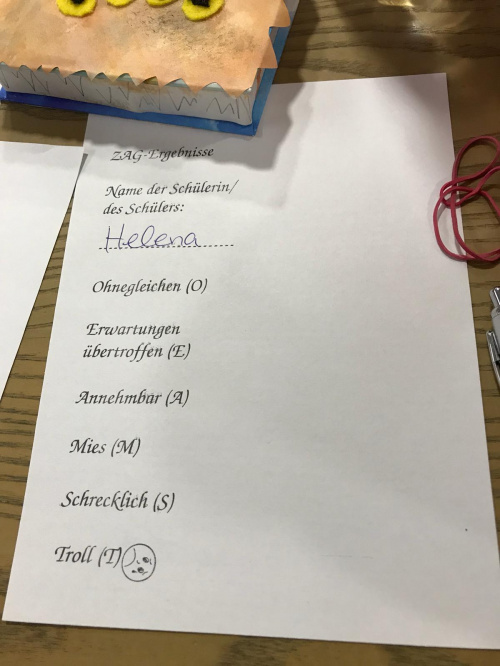 ZAG-Ergebnisse
Name der Schülerin/
des Schülers:
Helena
Ohnegleichen (O)
Erwartungen
übertroffen (E)
Annehmbar (A)
Mies (M)
Schrecklich (S)
Troll (T)